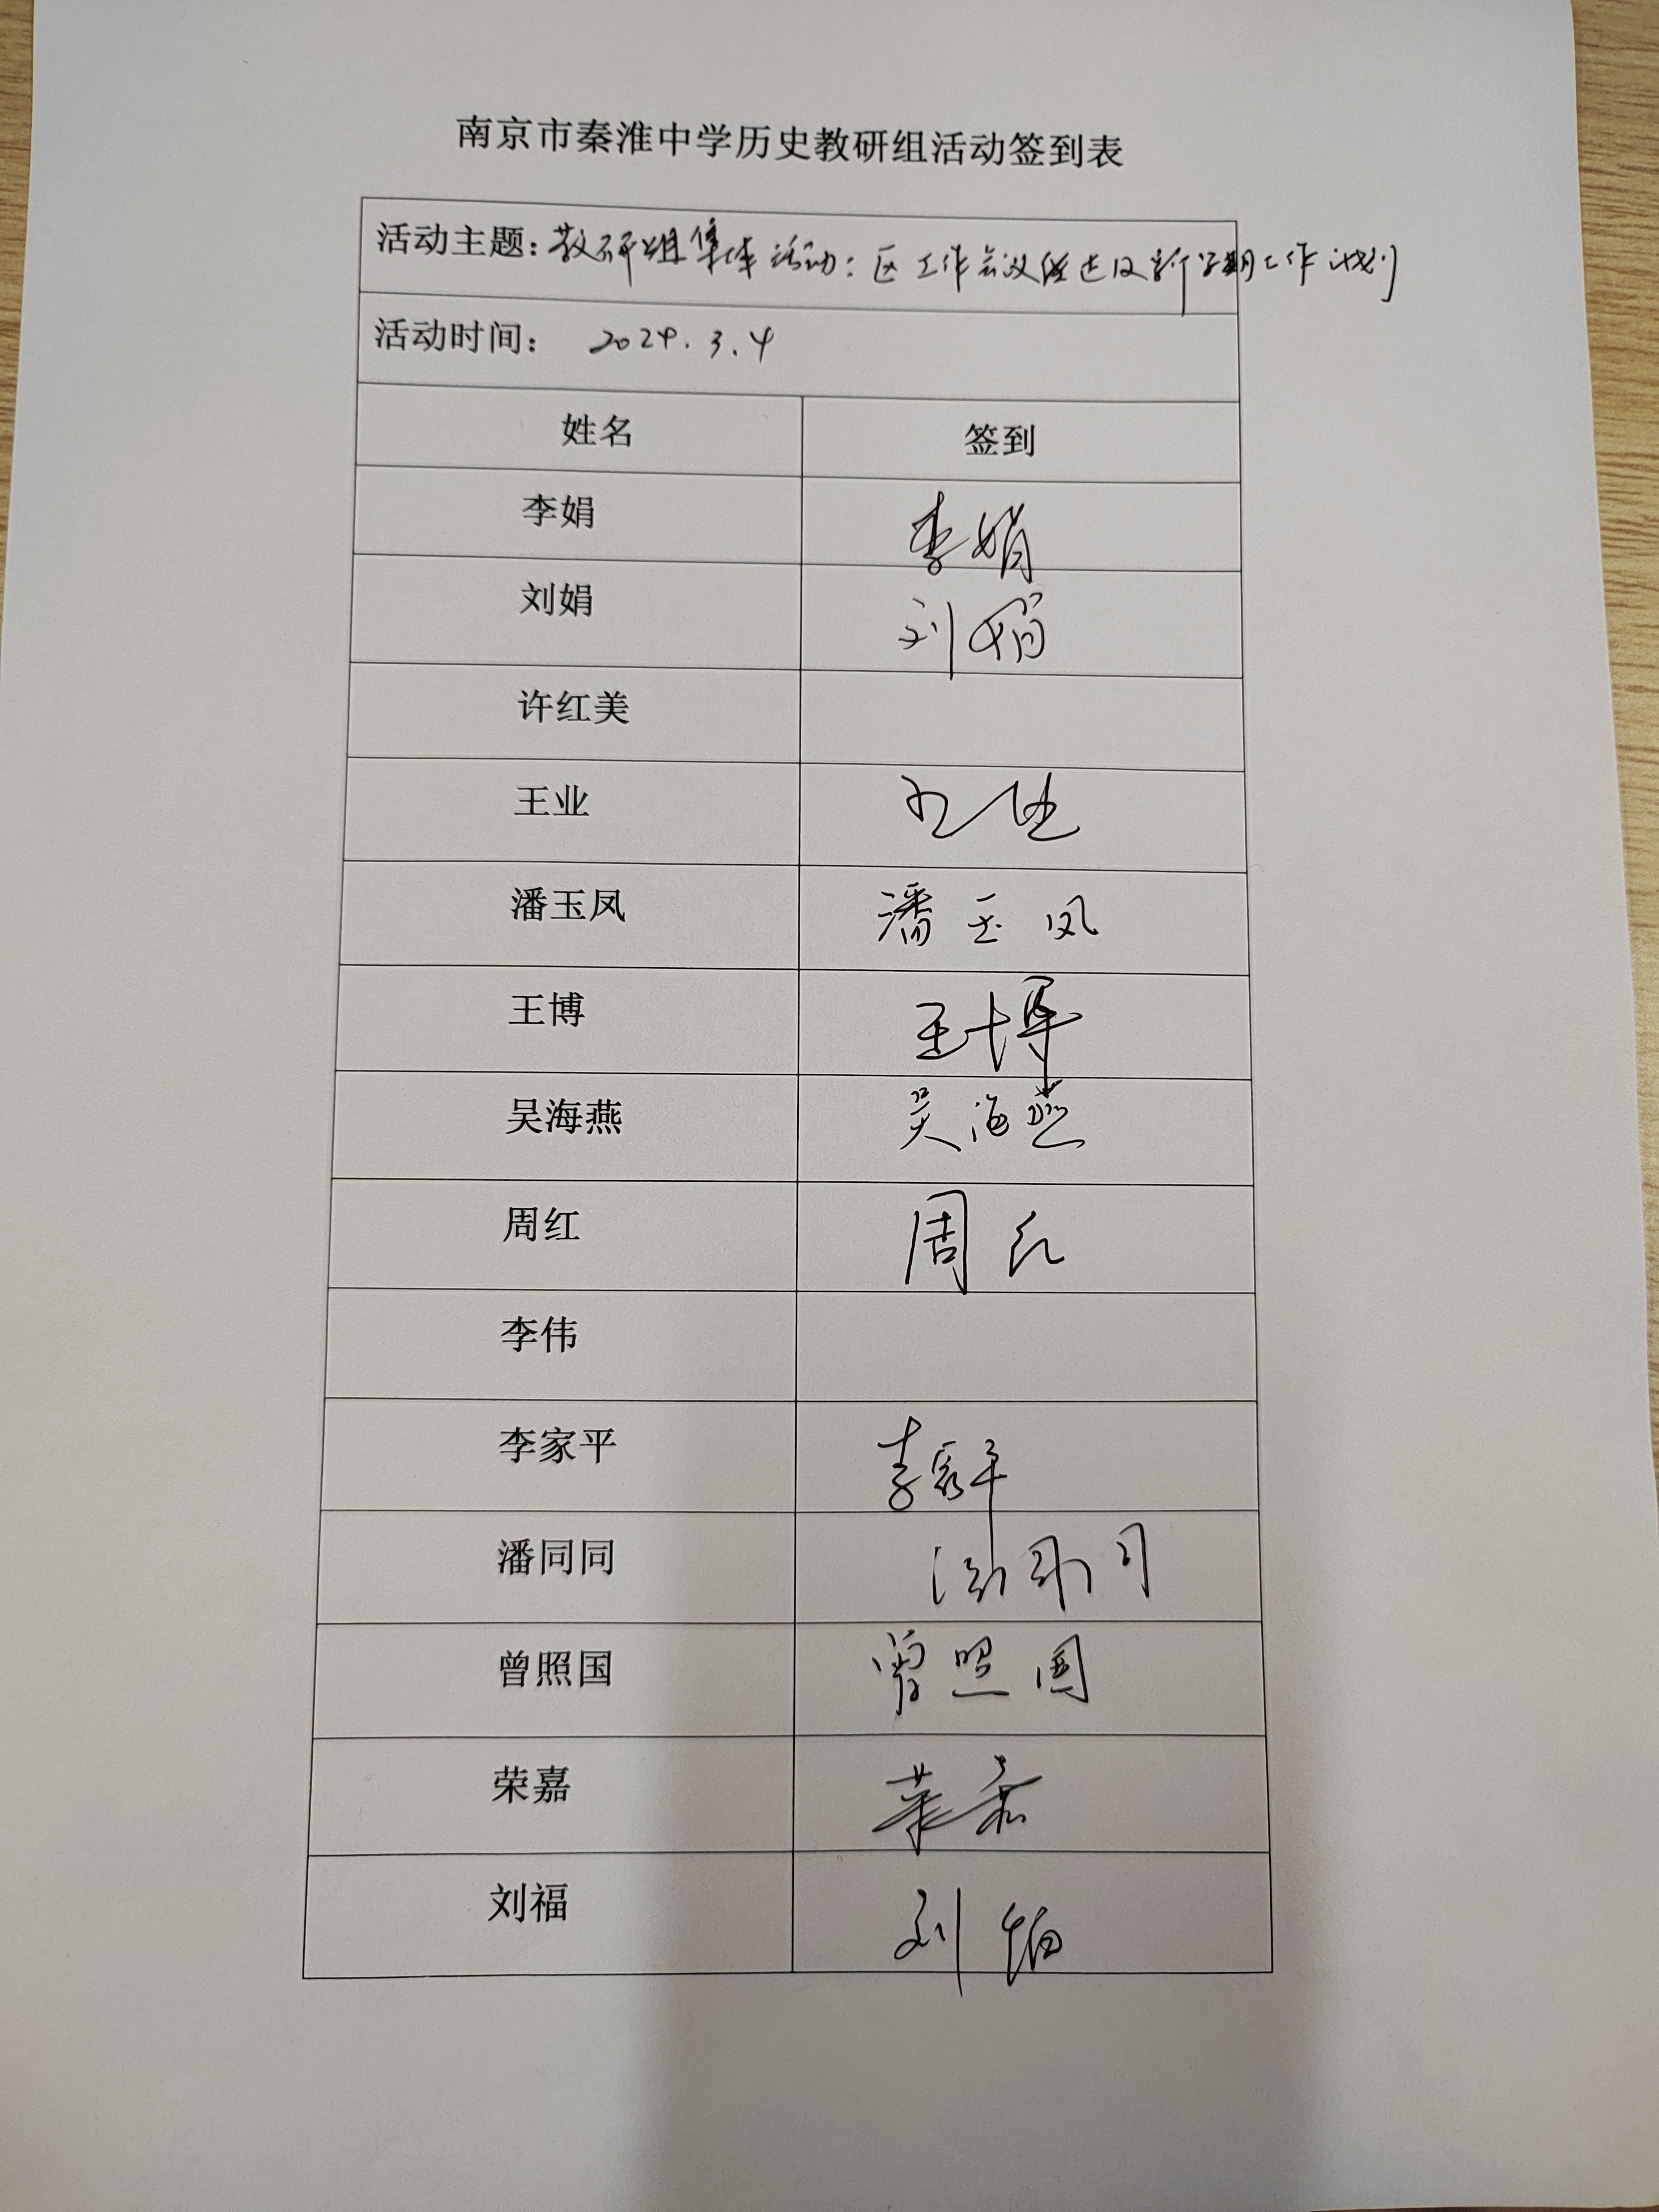 南京市秦淮中学历史教研组活动签到表
活动主题：教研组集体活动：区工作会议传达及新学期工作计划
活动时间： 2024.3.4
姓名 签到
李娟 李娟
刘娟 刘娟
许红美
王业 王业
潘玉凤 潘玉凤
王博 王博
吴海燕 吴海燕
周红 周红
李伟
李家平 李家平
潘同同 潘同同
曾照国 曾照国
荣嘉 荣嘉
刘福 刘福